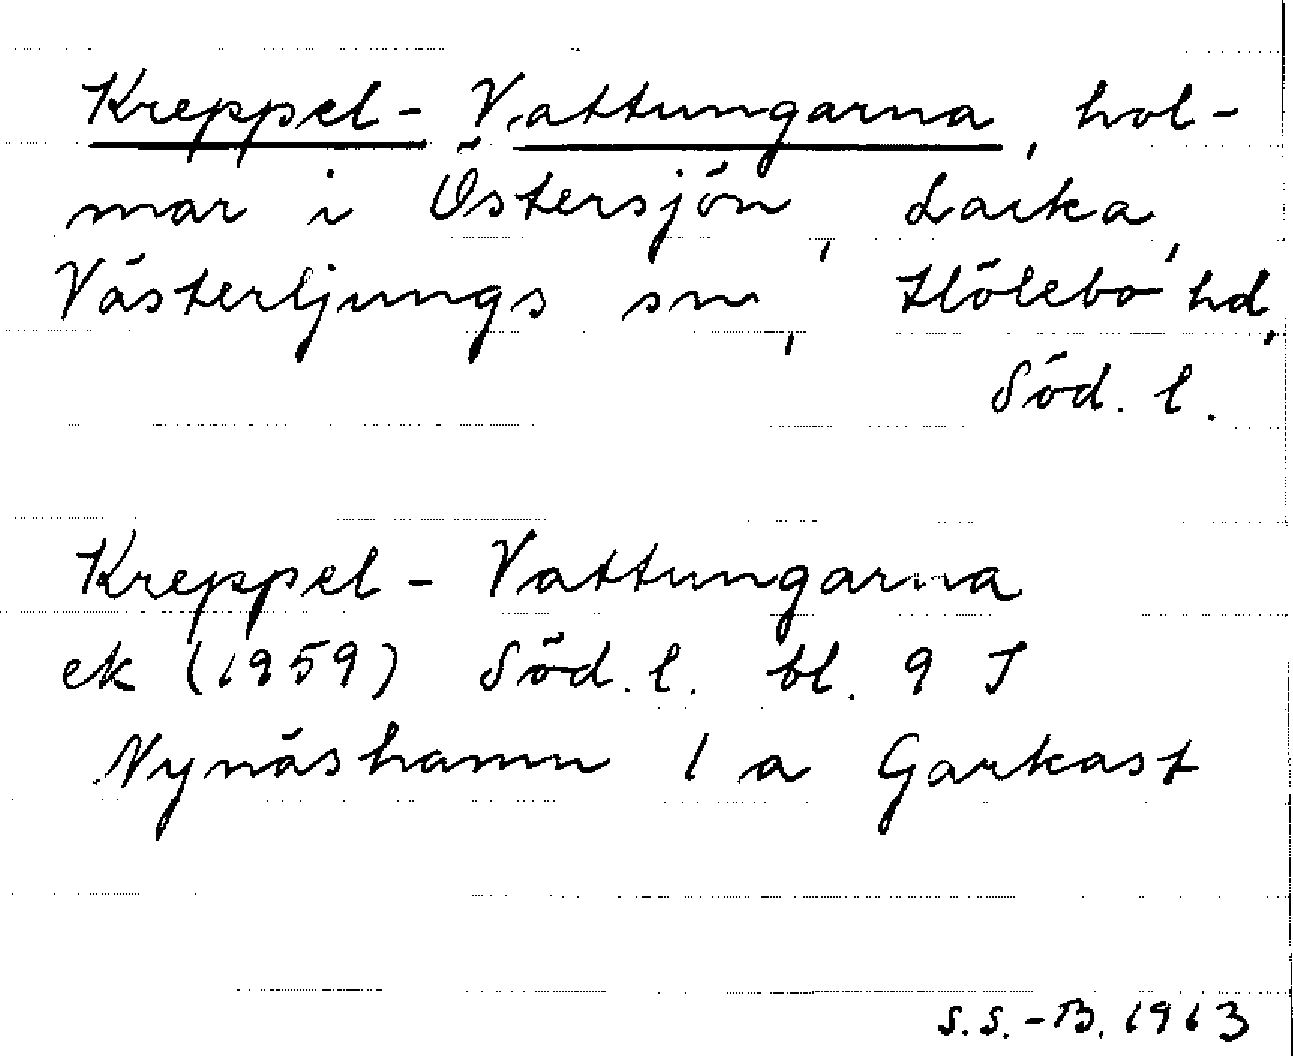 Kreppel-Vattungarna, hol-
mar i Östersjön, Lacka,
Västerljungs sn, Hölebo hd,
Söd. l.
Kreppel-Vattungarna
ek (1959) Söd. l. bl. 9 J
Nynäshamn 1 a Garkast
S.S.-B. 1963